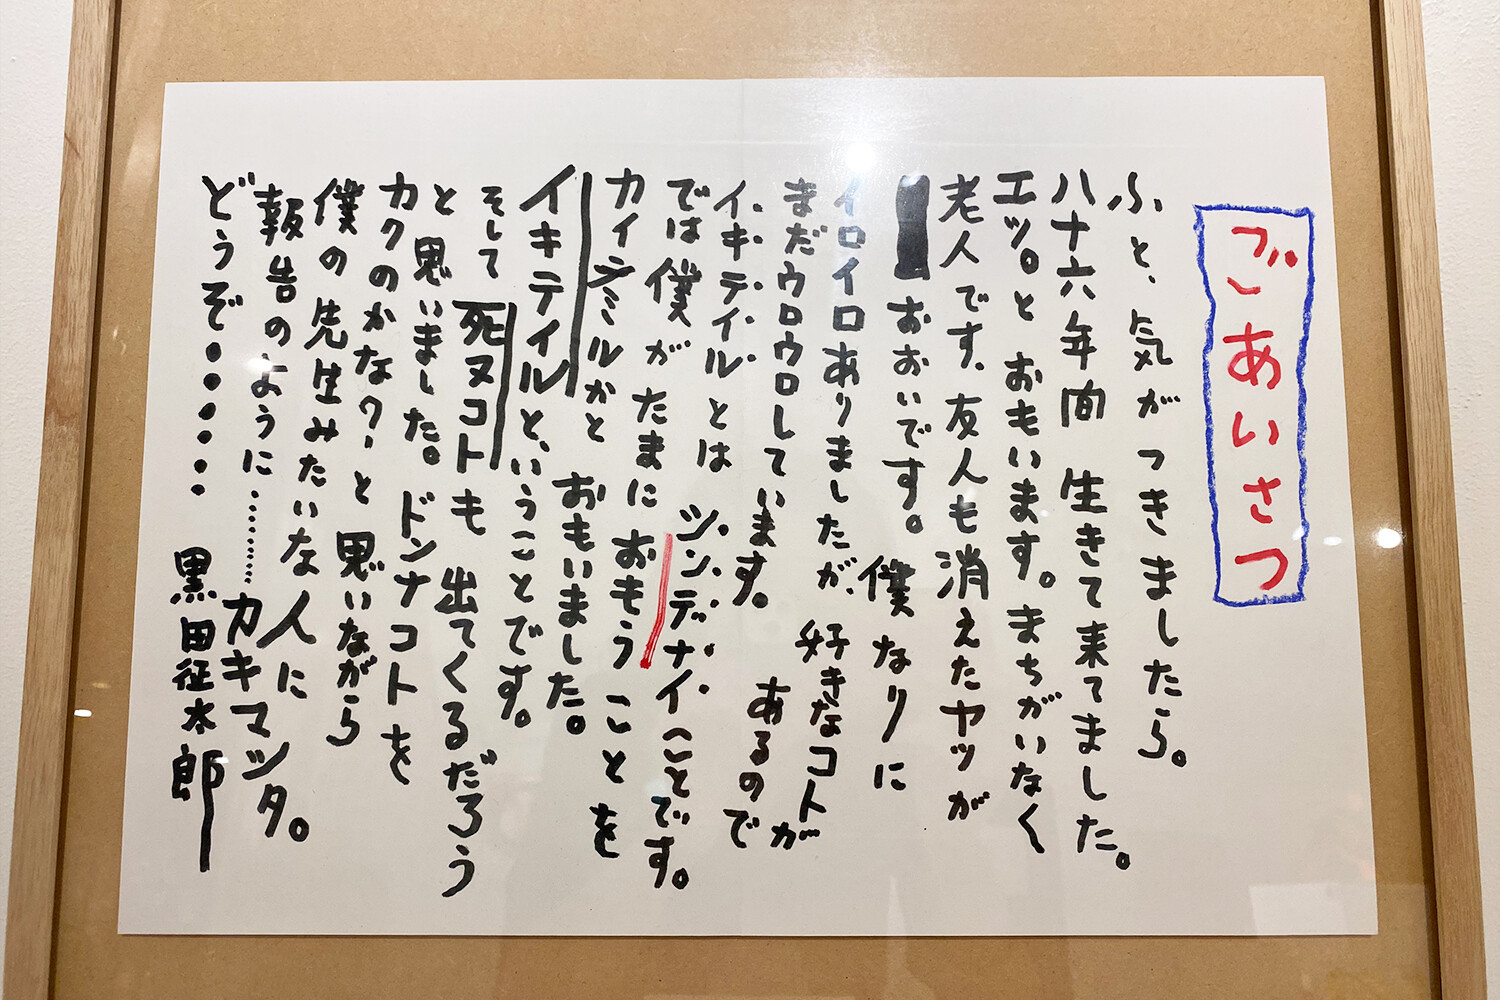 ごあいさつ
ふと、気がつきましたら。
八十六年間 生きて来てました。
エッ。とおもいます。まちがいなく
老人です、友人も消えたヤツが
おおいです。僕なりに
イロイロありましたが、好きなコトが
まだウロウロしています。あるので
イキテイルとはシンデナイことです。
では僕がたまにおもうことを
カイテミルかとおもいました。
イキテイルと、いうことです。
そして死ヌコトも出てくるだろう
と思いました。ドンナコトを
カクのかなァーと思いながら
僕の先生みたいな人に
報告のように………カキマシタ。
どうぞ・・・・・・・ 黒田征太郎